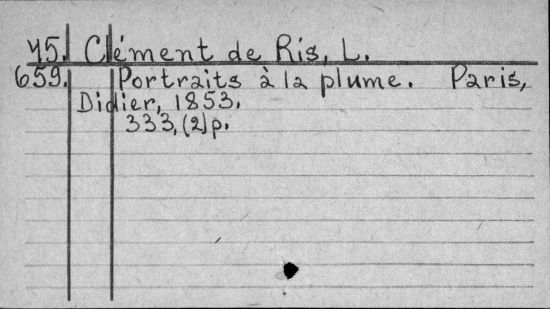 45. Clément de Ris, L.
659. Portraits à la plume. Paris,
Didier, 1853.
333, (2) p.